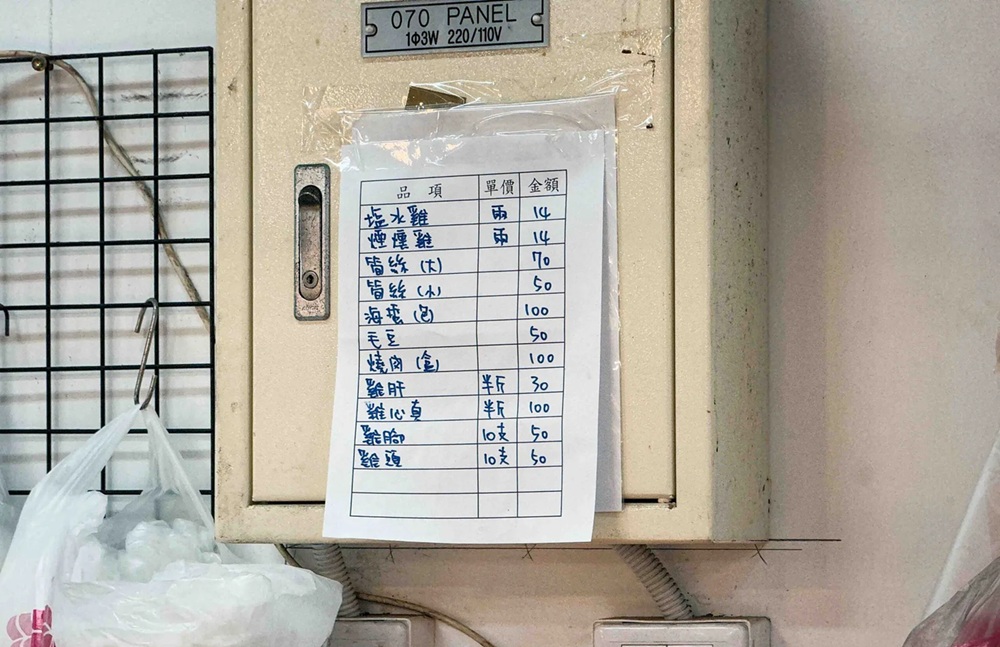 070 PANEL
1Φ3W 220/110V
品項 單價 金額
塩水雞 兩 14
煙燻雞 兩 14
筍絲(大) 70
筍絲(小) 50
海蜇(包) 100
毛豆 50
燒肉(盒) 100
雞肝 半斤 30
雞心真 半斤 100
雞腳 10支 50
雞頭 10支 50